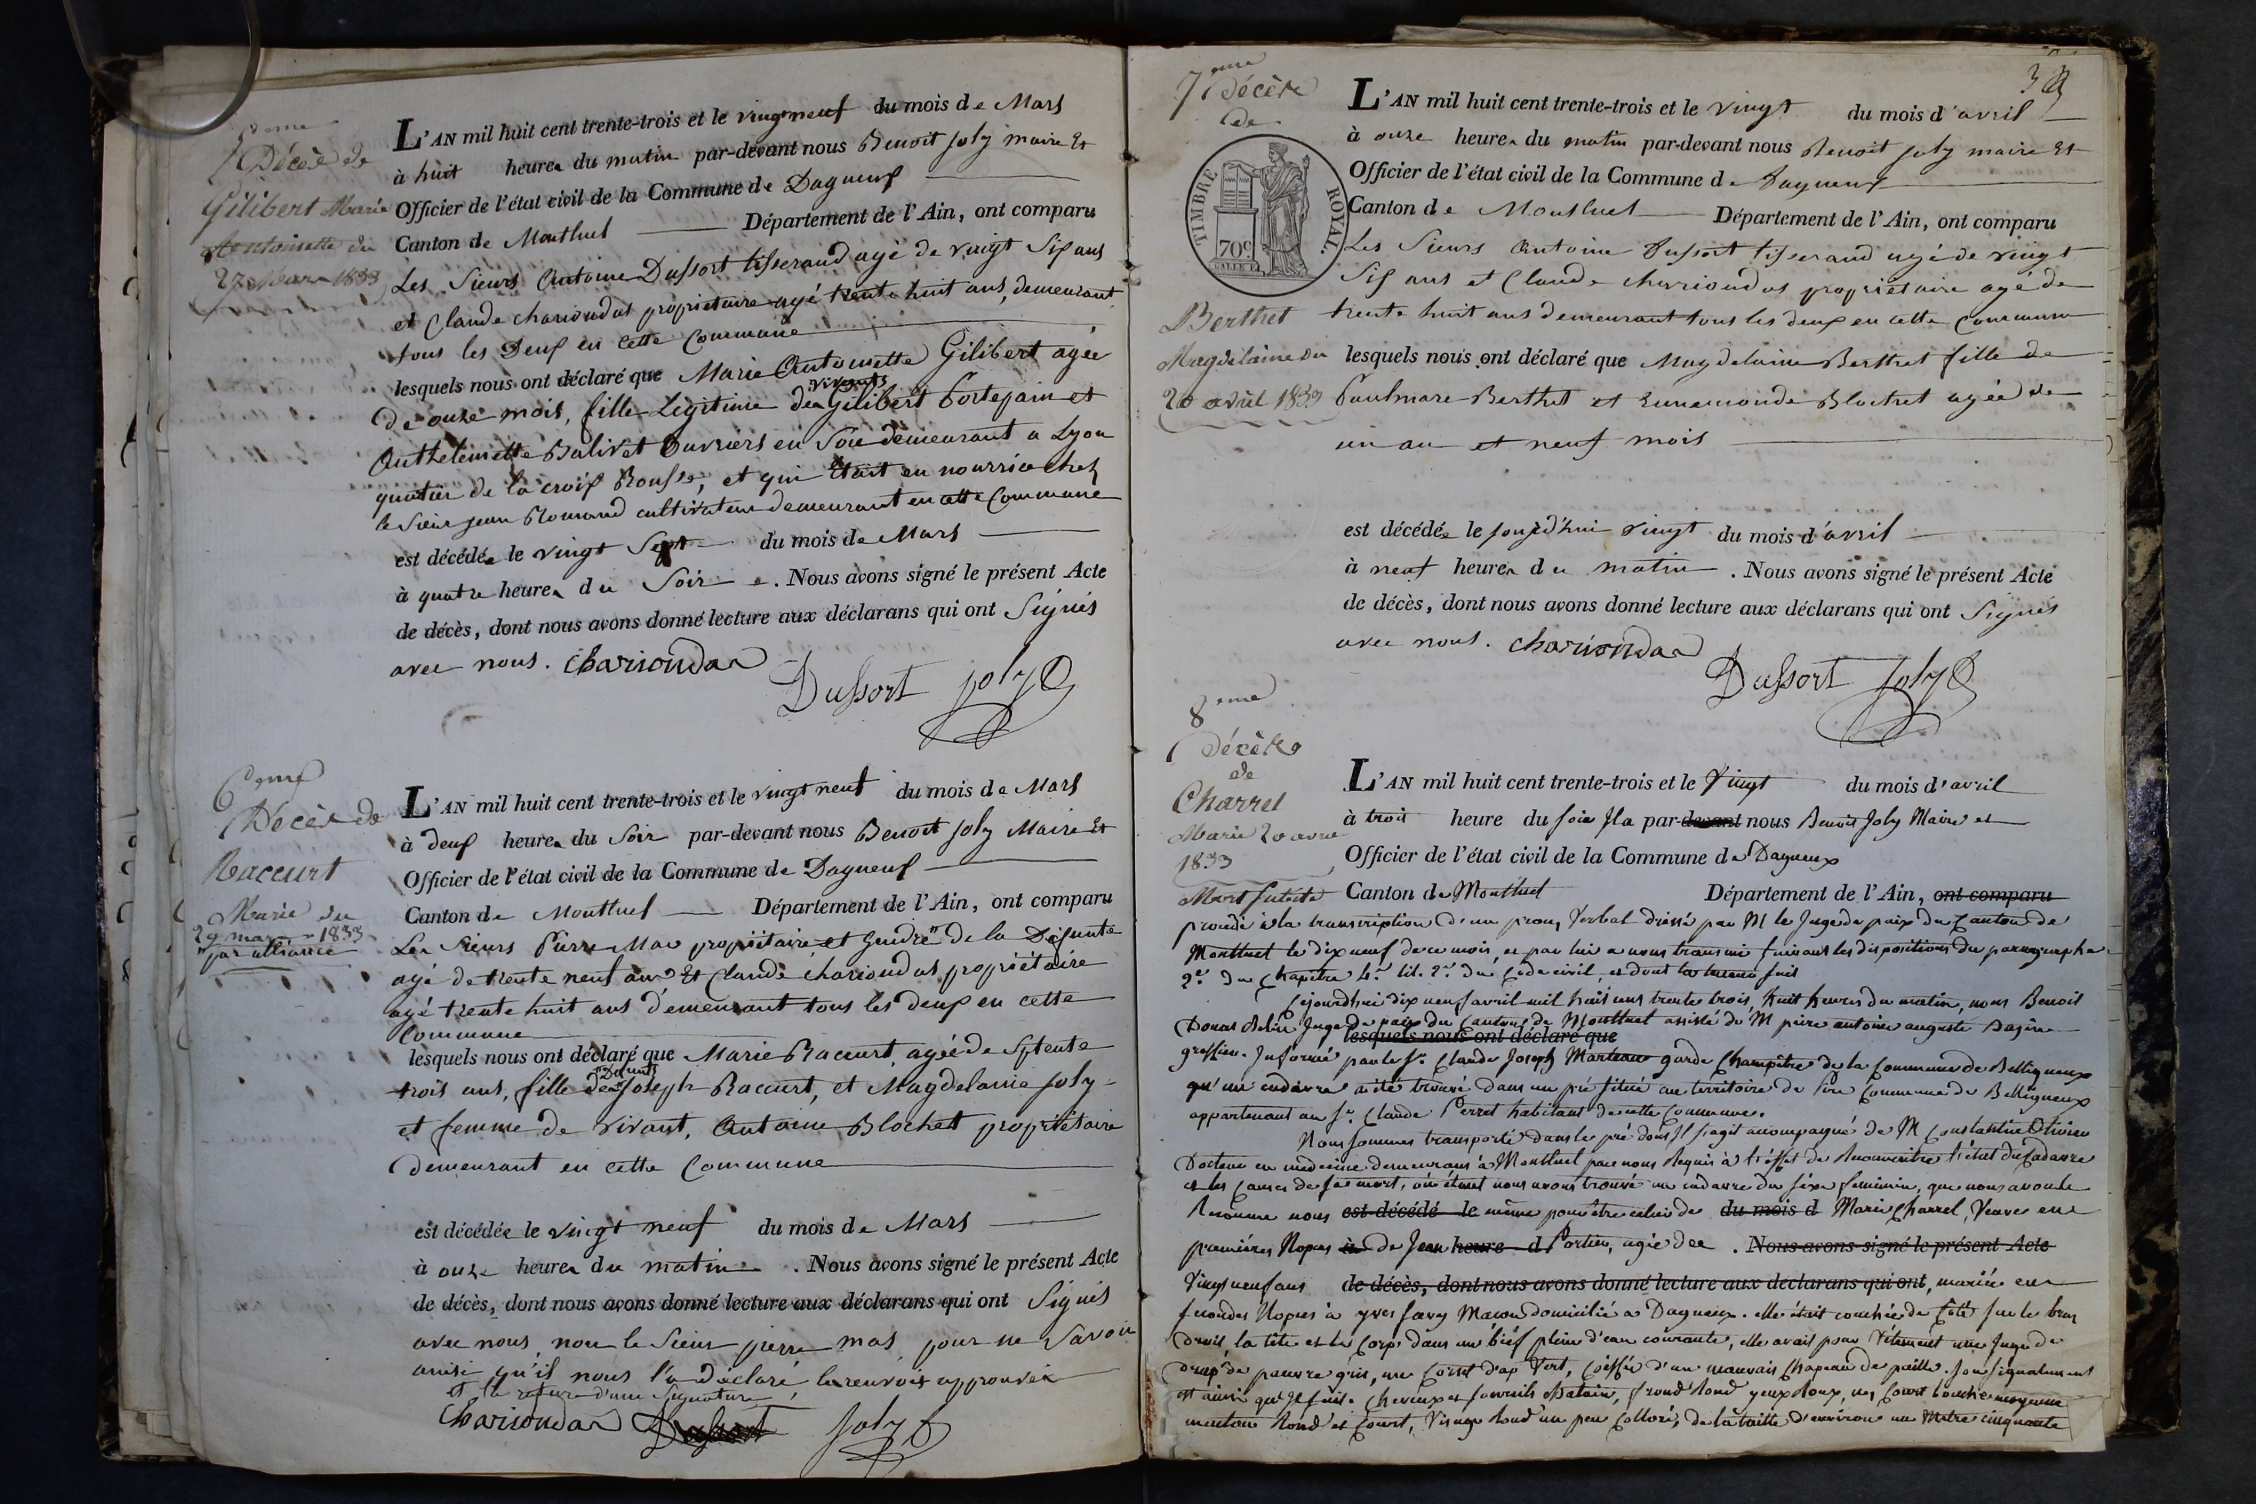 5eme
Décès de
Gilibert Marie
Antoinette du
27 Mars 1833
L'AN mil huit cent trente-trois et le vingt neuf du mois de Mars
à huit heures du matin par-devant nous Benoit Joly maire Et
Officier de l'état civil de la Commune de Dagneux
Canton de Montluel Département de l'Ain, ont comparu
Les Sieurs Antoine Dussort tisserand agé de vingt Six ans
et Claude charioudas propriétaire agé trente huit ans, demeurant
tous les Deux en cette Commune
lesquels nous ont déclaré que Marie Antoinette Gilibert agée
de onze mois, fille Légitime des vivants Gilibert Portejoin et
Anthelemette Balivet ouvriers en Soie demeurant a Lyon
quartier de la croix Rousse, et qui était en nourrice chez
le Sieur jean Romand cultivateur demeurant en cette Commune
est décédée le vingt Sept du mois de Mars
à quatre heures du Soir. Nous avons signé le présent Acte
de décès, dont nous avons donné lecture aux déclarans qui ont Signés
avec nous. Charioudas
Dussort joly
6eme
Décès de
Raccurt
Marie du
29 mars 1833
par alliance
L'AN mil huit cent trente-trois et le vingt neuf du mois de Mars
à deux heures du Soir par-devant nous Benoit Joly Maire Et
Officier de l'état civil de la Commune de Dagneux
Canton de Montluel Département de l'Ain, ont comparu
Les Sieurs Pierre Mas propriétaire et Gendre de la Défunte
agé de trente neuf ans Et Claude charioudas propriétaire
agé trente huit ans demeurant tous les deux en cette
Commune
lesquels nous ont déclaré que Marie Raccurt agée de Septente
trois ans, fille des Défunts Joseph Raccurt, et Magdelaine Joly
et femme de vivant, Antoine Blochet propriétaire
demeurant en cette Commune
est décédée le vingt neuf du mois de Mars
à onze heures du matin. Nous avons signé le présent Acte
de décès, dont nous avons donné lecture aux déclarans qui ont Signés
avec nous, non le Sieur pierre mas pour ne Savoir
ainsi qu'il nous l'a Déclaré le renvois approuvé
et la rature d'une Signature
Charioudas Dussort Joly
7eme Décès
de
Berthet
Magdelaine du
20 avril 1833
TIMBRE ROYAL.
70 c.
L'AN mil huit cent trente-trois et le vingt du mois d'avril
à onze heures du matin par-devant nous Benoit Joly maire Et
Officier de l'état civil de la Commune de Dagneux
Canton de Montluel Département de l'Ain, ont comparu
Les Sieurs Antoine Dussort tisserand agé de vingt
Six ans et Claude charioudas propriétaire agé de
trente huit ans demeurant tous les deux en cette Commune
lesquels nous ont déclaré que Magdelaine Berthet fille de
Berthet et Blochet agée de
un an et neuf mois
est décédée le jourd'hui vingt du mois d'avril
à neuf heures du matin. Nous avons signé le présent Acte
de décès, dont nous avons donné lecture aux déclarans qui ont Signés
avec nous. Charioudas
Dussort Joly
8eme
Décès
de
Charrel
Marie 20 avril
1833
Mort Subite
L'AN mil huit cent trente-trois et le Vingt du mois d'avril
à trois heure du soir Il a par-devant nous Benoit Joly Maire et
Officier de l'état civil de la Commune de Dagneux
Canton de Montluel Département de l'Ain, ont comparu
procédé à la transcription d'un proces Verbal dressé par M le Juge de paix du Canton de
Montluel le dix neuf de ce mois, et par lui a nous transmis suivant les dispositions du paragraphe
2e du Chapitre 4e tit. 2e du Code civil, et dont la teneur suit
Cejourd'hui dix neuf avril mil huit cent trente trois, huit heures du matin, nous Benoit
Juge de paix du Canton de Montluel assisté de M pierre antoine auguste
lesquels nous ont déclaré que
greffier. Informé par le Sr. Claude Joseph Marteau garde Champêtre de la Commune de Belligneux
qu'un cadavre a été trouvé dans un pré situé au territoire de Commune de Belligneux
appartenant au Sr. Claude Perret habitant de cette Commune.
Nous sommes transporté dans le pré dont Il s'agit accompagné de M Constantin Olivier
Docteur en médecine demeurant à Montluel par nous requis à l'effet de reconnaitre l'état du Cadavre
et les Causes de sa mort, où étant nous avons trouvé un cadavre du séxe féminin, que nous avons
reconnu nous est décédé le même pour être celui de du mois d Marie Charrel, Veuve en
premières Nopces à de Jean heure d Portier, agée de. Nous avons signé le présent Acte
Vingt neuf ans de décès, dont nous avons donné lecture aux déclarans qui ont, mariée en
secondes Nopces à yves favy Macon domicilié a Dagneux. elle était couchée de Coté sur le bras
droit, la tête et le Corp dans un bief plein d'eau courante, elle avait pour vêtement une Jupe de
drap de pauvre gris, un Corset drap Vert, Coiffée d'un mauvais Chapeau de paille. Son signalement
est ainsi qu'il suit. Cheveux et sourcils chatain, front rond yeux roux, nez Court bouche moyenne
menton rond et Court, Visage rond un peu Colloré, de la taille d'environ un Mètre cinquante